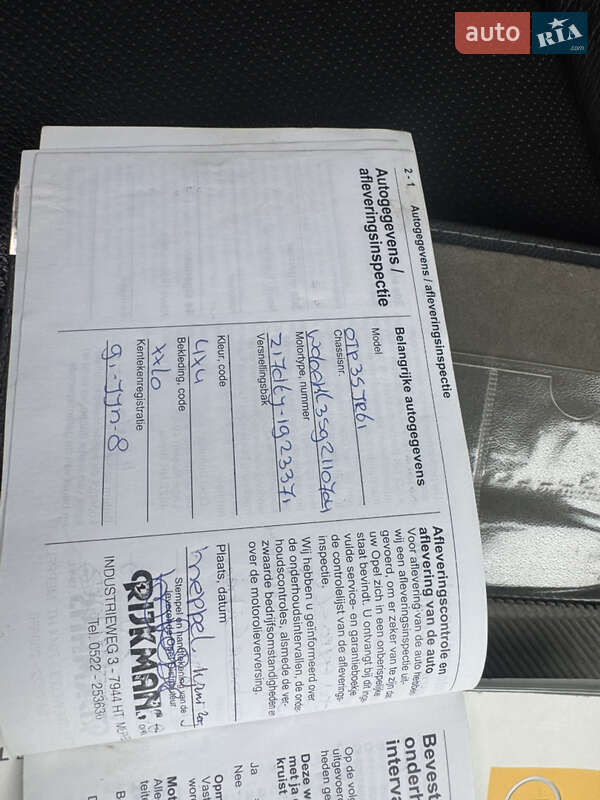 auto
RIA
.com
2 - 1 Autogegevens / afleveringsinspectie
Autogegevens /
afleveringsinspectie
Belangrijke autogegevens
Model
Chassisnr.
Motortype, nummer
Versnellingsbak
Kleur, code
4x4
Bekleding, code
xxlo
Kentekenregistratie
Afleveringscontrole en
aflevering van de auto
Voor aflevering van de auto hebben
wij een afleveringsinspectie uit-
gevoerd, om er zeker van te zijn dat
uw Opel zich in een onberispelijke
staat bevindt. U ontvangt bij dit
vulde service- en garantieboekje
de controlelijst van de afleverings-
inspectie.
Wij hebben u geïnformeerd over
de onderhoudsintervallen, de onder-
houdscontroles, alsmede de ver-
zwaarde bedrijfsomstandigheden en
over de motorolieverversing.
Plaats, datum
meppel
Stempel en handtekening van de
RIJKMAN
INDUSTRIEWEG 3 - 7944 HT
Tel. 0522 - 253630
Bevest
onderh
interva
Op de vol
uitgevoer
heden ge
Deze w
met ja
kruist
Ja
Nee
Opm
Vast
wor
Mot
Alle